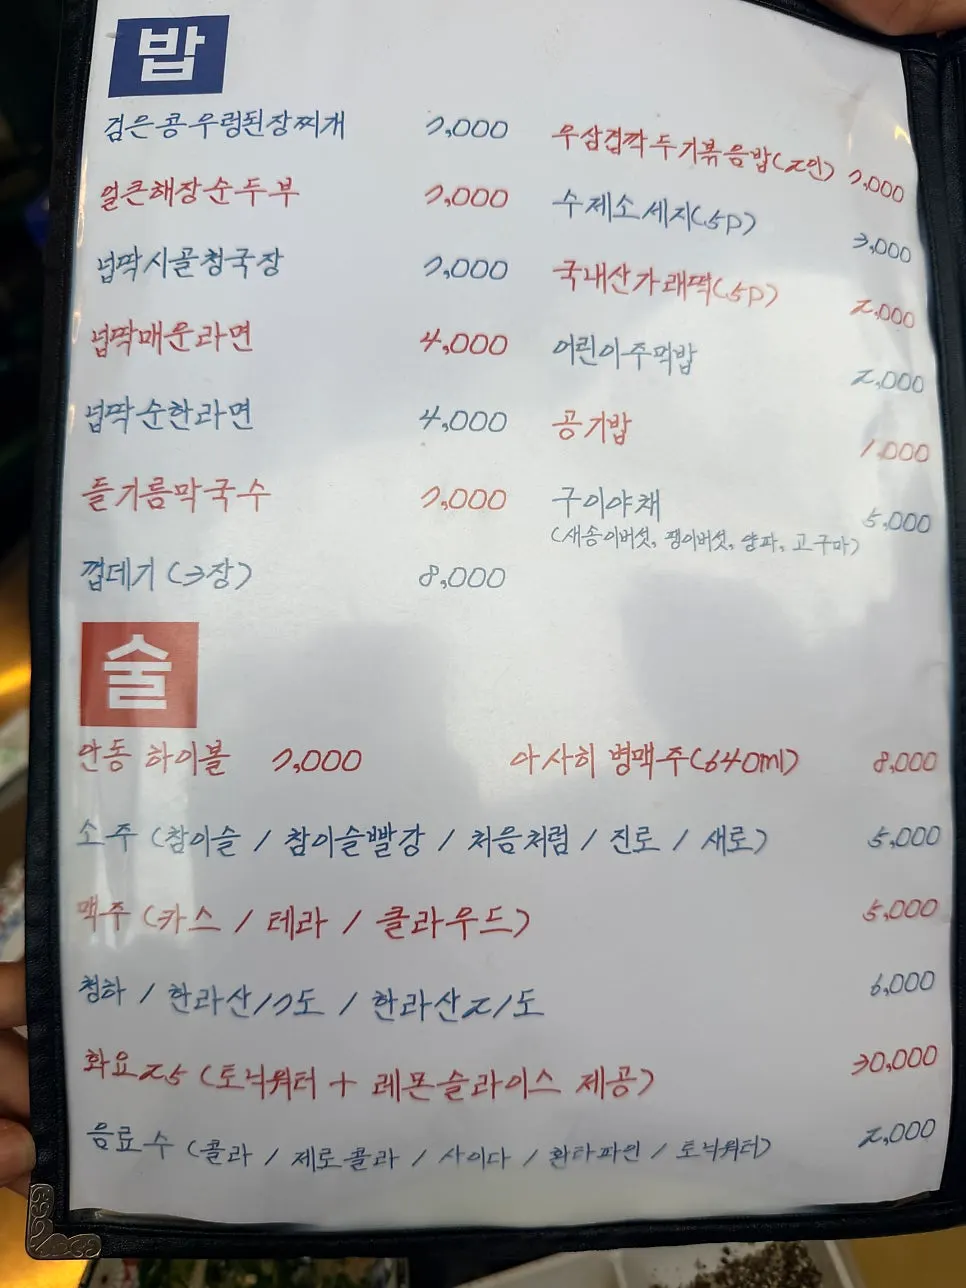 밥
검은콩우렁된장찌개 7,000
얼큰해장순두부 7,000
넙딱시골청국장 7,000
넙딱매운라면 4,000
넙딱순한라면 4,000
들기름막국수 7,000
껍데기 (3장) 8,000
우삼겹깍두기볶음밥(2인) 7,000
수제소세지(5P) 3,000
국내산가래떡(5P) 2,000
어린이주먹밥 2,000
공기밥 1,000
구이야채 5,000
(새송이버섯, 팽이버섯, 양파, 고구마)
술
안동 하이볼 7,000 아사히 병맥주(640ml) 8,000
소주 (참이슬 / 참이슬빨강 / 처음처럼 / 진로 / 새로) 5,000
맥주 (카스 / 테라 / 클라우드) 5,000
청하 / 한라산17도 / 한라산21도 6,000
화요25 (토닉워터 + 레몬슬라이스 제공) 30,000
음료수 (콜라 / 제로콜라 / 사이다 / 환타파인 / 토닉워터) 2,000